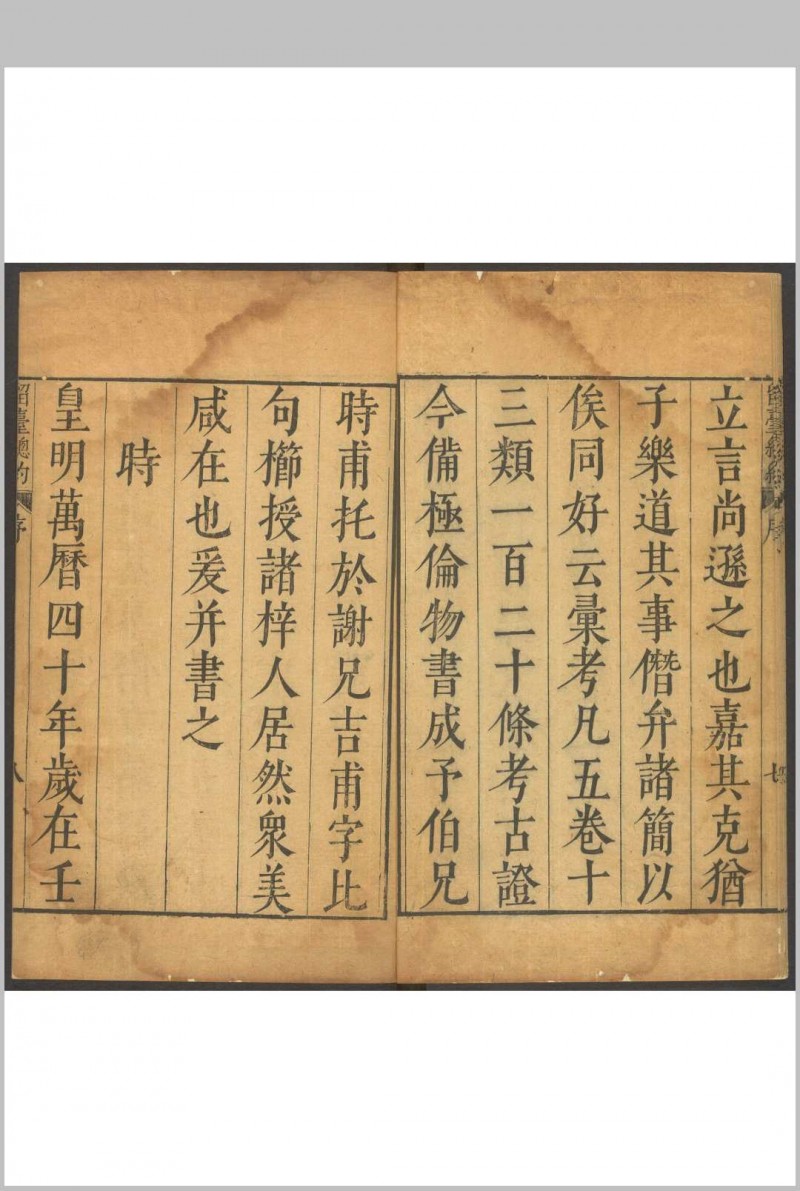 立言尚遜之也嘉其克猶
子樂道其事僭弁諸簡以
俟同好云彙考凡五卷十
三類一百二十條考古證
今備極倫物書成予伯兄
時甫托於謝兄吉甫字比
句櫛授諸梓人居然衆美
咸在也爰并書之
時
皇明萬曆四十年歲在壬
序
八